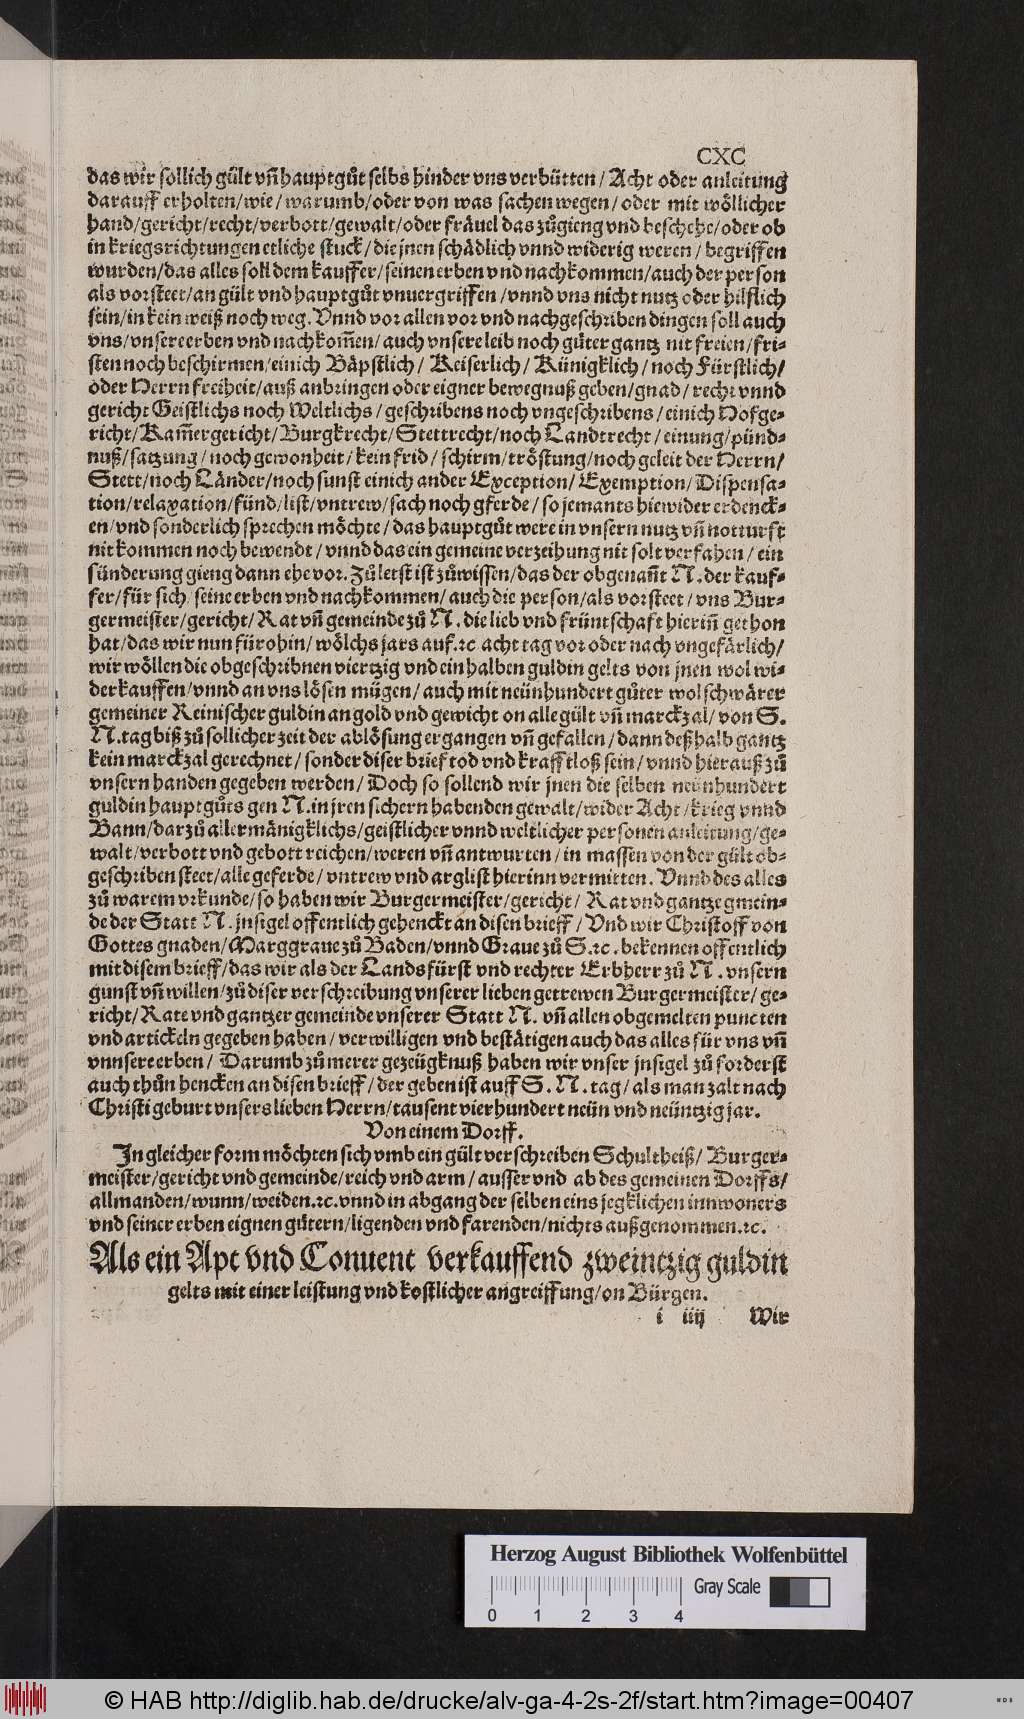 CXC
das wir sollich gült vñ hauptgůt selbs hinder vns verbütten / Acht oder anleitung
darauff erholten/wie/warumb/oder von was sachen wegen/oder mit wöllicher
hand/gericht/recht/verbott/gewalt/oder fräuel das zůgieng vnd beschehe/oder ob
in kriegsrichtungen etliche stuck/die jnen schädlich vnnd widerig weren/begriffen
wurden/das alles soll dem kauffer/seinen erben vnd nachkommen/auch der person
als vorsteet/an gült vnd hauptgůt vnuergriffen/vnnd vns nicht nutz oder hilflich
sein/in kein weiß noch weg. Vnnd vor allen vor vnd nachgeschriben dingen soll auch
vns/vnsere erben vnd nachkom̃en/auch vnsere leib noch gůter gantz nit freien/fri-
sten noch beschirmen/einich Bäpstlich/ Keiserlich/ Künigklich/noch Fürstlich/
oder Herrn freiheit/auß anbringen oder eigner bewegnuß geben/gnad/recht vnnd
gericht Geistlichs noch Weltlichs/geschribens noch vngeschribens/einich Hofge-
richt/Kam̃ergericht/Burgkrecht/Stettrecht/noch Landtrecht/einung/pünd-
nuß/satzung/noch gewonheit/kein frid/schirm/tröstung/noch geleit der Herrn/
Stett/noch Länder/noch sunst einich ander Exception/Exemption/Dispensa-
tion/relaxation/fünd/list/vntrew/sach noch gferde/so jemants hiewider erdenck-
en/vnd sonderlich sprechen möchte/das hauptgůt were in vnsern nutz vñ notturft
nit kommen noch bewendt/vnnd das ein gemeine verzeihung nit solt verfahen/ein
sünderung gieng dann ehe vor. Zů letst ist zůwissen/das der obgenañt N. der kauf-
fer/für sich/seine erben vnd nachkommen/auch die person/als vorsteet/vns Bur-
germeister/gericht/Rat vñ gemeinde zů N. die lieb vnd früntschaft hieriñ gethon
hat/das wir nun fürohin/wölchs jars auf.ꝛc acht tag vor oder nach vngefärlich/
wir wöllen die obgeschribnen viertzig vnd ein halben guldin gelts von jnen wol wi-
derkauffen/vnnd an vns lösen mügen/auch mit neünhundert gůter wolschwärer
gemeiner Reinischer guldin an gold vnd gewicht on alle gült vñ marckzal/von S.
N. tag biß zů sollicher zeit der ablösung ergangen vñ gefallen/dann deßhalb gantz
kein marckzal gerechnet/sonder diser brief tod vnd krafftloß sein/vnnd hierauß zů
vnsern handen gegeben werden/Doch so sollend wir jnen die selben neünhundert
guldin hauptgůts gen N. in jren sichern habenden gewalt/wider Acht/krieg vnnd
Bann/darzů allermänigklichs/geistlicher vnnd weltlicher personen anleitung/ge-
walt/verbott vnd gebott reichen/weren vñ antwurten/in massen von der gült ob-
geschriben steet/alle geferde/vntrew vnd arglist hierinn vermitten. Vnnd des alles
zů warem vrkunde/so haben wir Burgermeister/gericht/ Rat vnd gantze gmein-
de der Statt N. jnsigel offentlich gehenckt an disen brieff/Vnd wir Christoff von
Gottes gnaden/Marggraue zů Baden/vnnd Graue zů S.ꝛc. bekennen offentlich
mit disem brieff/das wir als der Landsfürst vnd rechter Erbherr zů N. vnsern
gunst vñ willen/zů diser verschreibung vnserer lieben getrewen Burgermeister/ge-
richt/Rate vnd gantzer gemeinde vnserer Statt N. vñ allen obgemelten puncten
vnd artickeln gegeben haben/verwilligen vnd bestätigen auch das alles für vns vñ
vnnsere erben/ Darumb zů merer gezeügknuß haben wir vnser jnsigel zů forderst
auch thůn hencken an disen brieff/der geben ist auff S. N. tag/als man zalt nach
Christi geburt vnsers lieben Herrn/tausent vierhundert neün vnd neüntzig jar.
Von einem Dorff.
In gleicher form möchten sich vmb ein gült verschreiben Schultheiß/ Burger-
meister/gericht vnd gemeinde/reich vnd arm/ausser vnd ab des gemeinen Dorffs/
allmanden/wunn/weiden.ꝛc. vnnd in abgang der selben eins jegklichen innwoners
vnd seiner erben eignen gütern/ligenden vnd farenden/nichts außgenommen.ꝛc.
Als ein Apt vnd Conuent verkauffend zweintzig guldin
gelts mit einer leistung vnd kostlicher angreiffung/on Bürgen.
i iiij Wir
Herzog August Bibliothek Wolfenbüttel
Gray Scale
0 1 2 3 4
© HAB http://diglib.hab.de/drucke/alv-ga-4-2s-2f/start.htm?image=00407